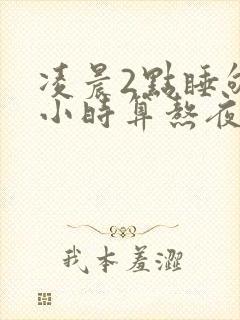 凌晨2點睡
小時算熬夜
我本羞澀